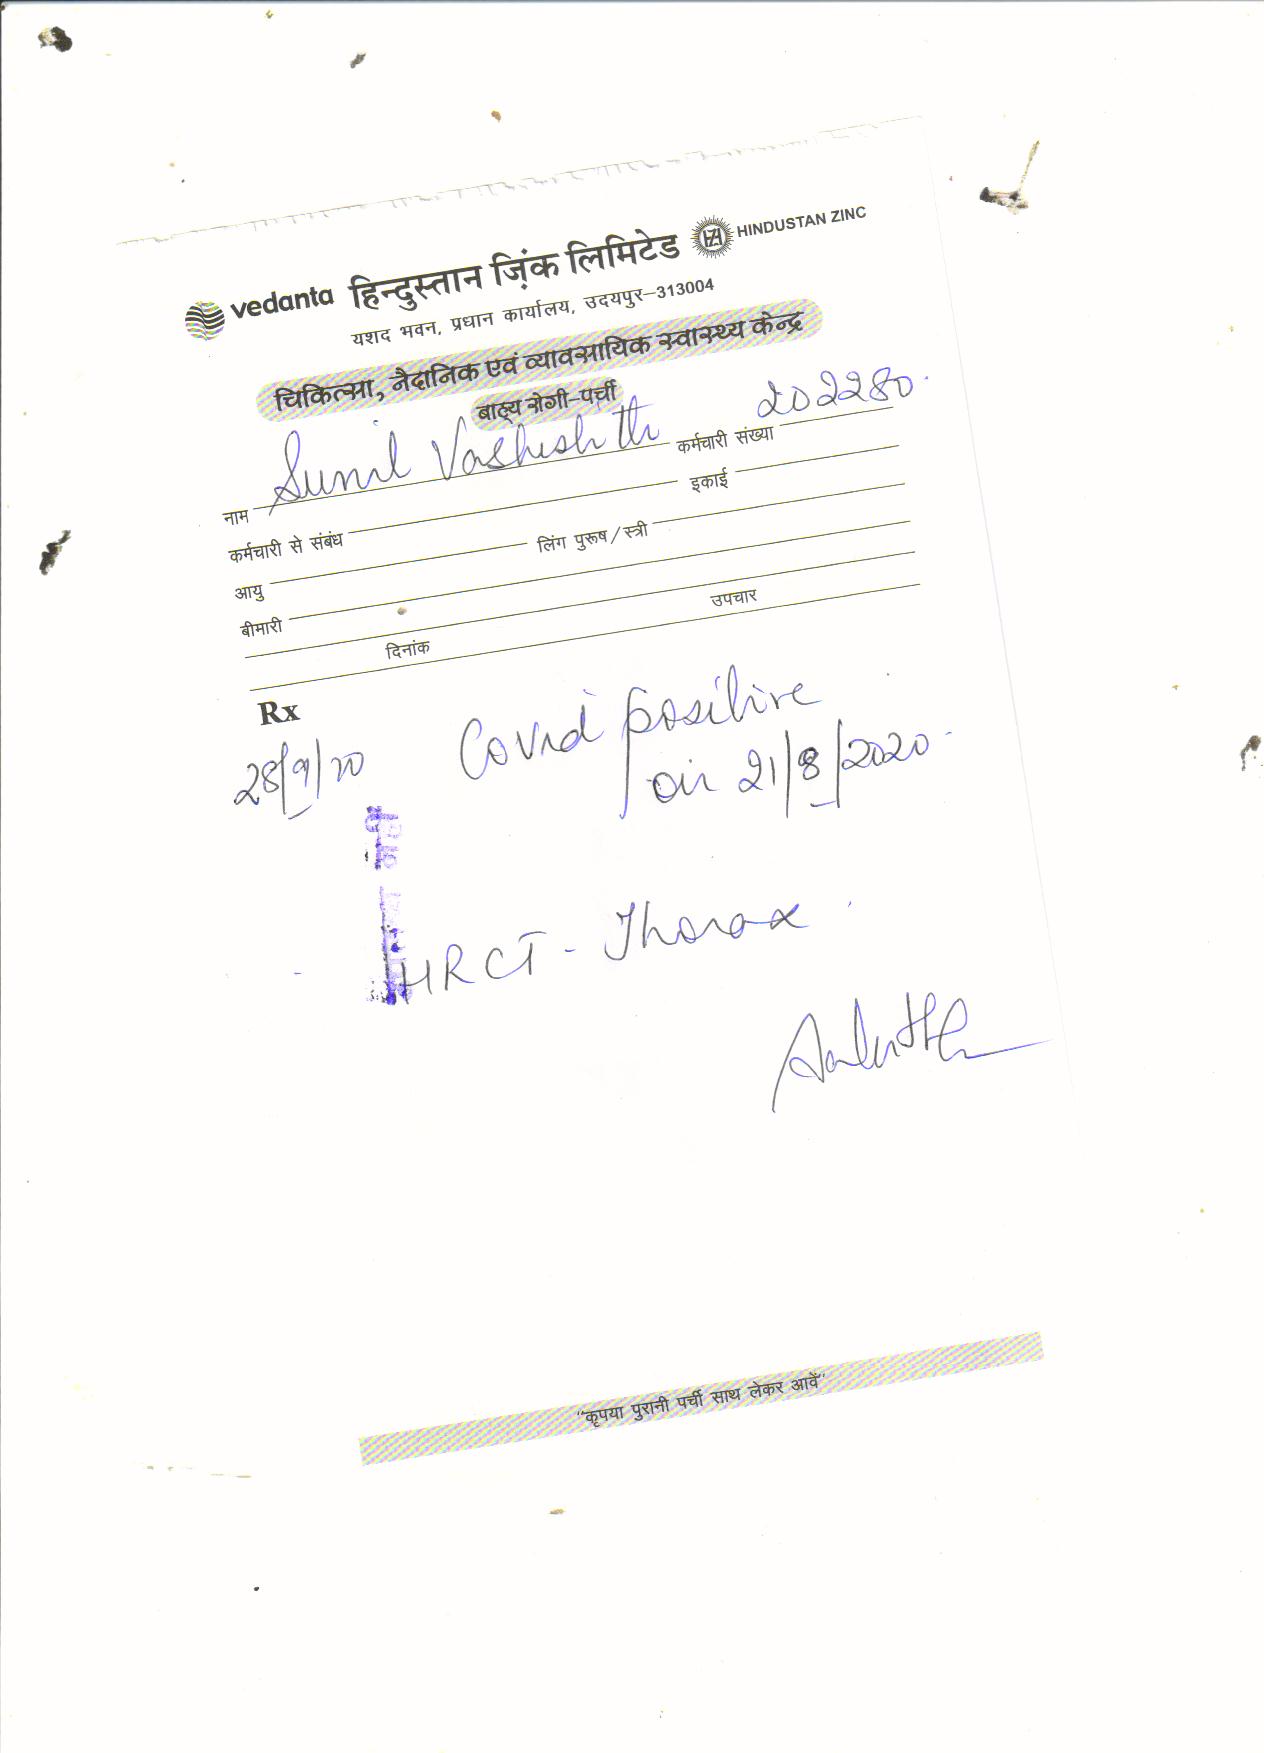 vedanta हिन्दुस्तान ज़िंक लिमिटेड HINDUSTAN ZINC
यशद भवन, प्रधान कार्यालय, उदयपुर-313004
चिकित्सा, नैदानिक एवं व्यावसायिक स्वास्थ्य केन्द्र
बाह्य रोगी-पर्ची
नाम Sunil Vashishth कर्मचारी संख्या 202280
कर्मचारी से संबंध इकाई
आयु लिंग पुरूष/स्त्री
बीमारी
दिनांक उपचार
Rx
28/9/20 Covid positive
on 21/8/2020
HRCT - Thorax
"कृपया पुरानी पर्ची साथ लेकर आवें"